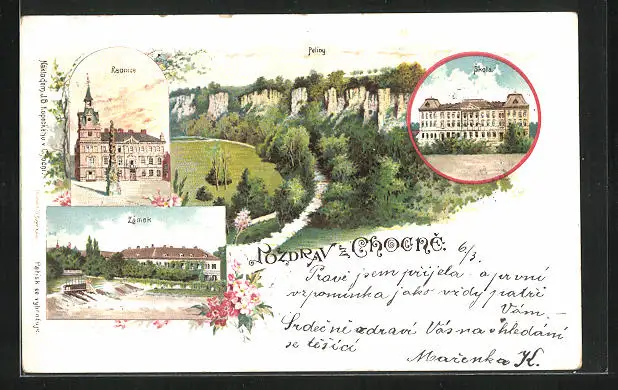 Peliny
Radnice
Škola
Zámek
Pozdrav z Chocně.
6/3.
Právě jsem přijela a první
vzpomínka jako vždy patří
Vám. —
Srdečně zdraví Vás na shledání
se těšící
Mařenka K.